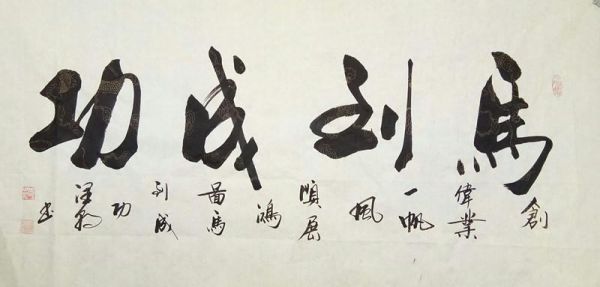 馬到成功
創
偉業
一帆
風
順展
鴻
圖馬
到成
功
书